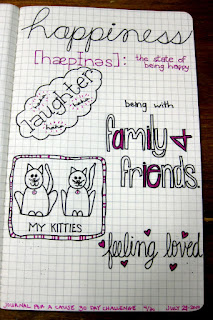 happiness
[hæpɪnəs]: the state of
being happy
laughter
haha
being with
family &
friends.
MY KITTIES
feeling loved
JOURNAL FOR A CAUSE 30 DAY CHALLENGE